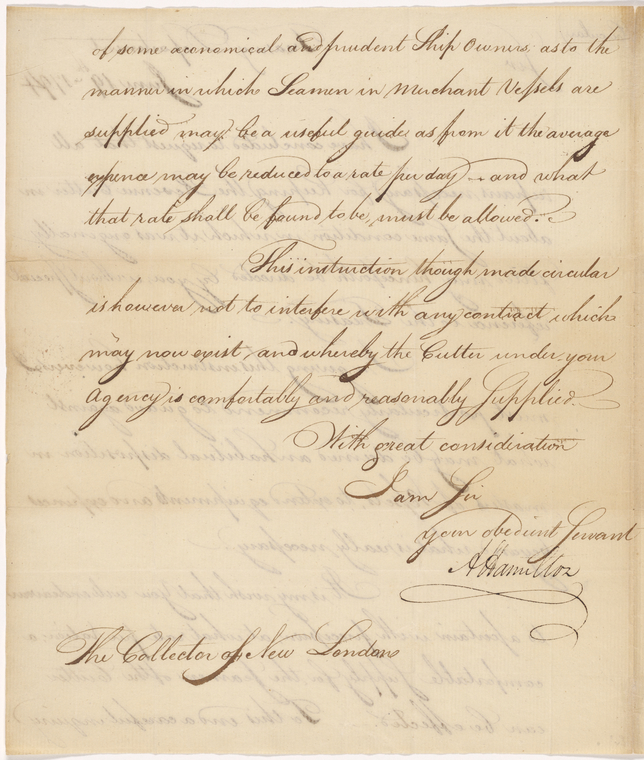 of some œconomical and prudent Ship Owners as to the
manner in which Seamen in Merchant Vessels are
supplied may be a useful guide as from it the average
expence may be reduced to a rate per day — and what
that rate shall be found to be, must be allowed.
This instruction though made circular
is however not to interfere with any contract which
may now exist and whereby the Cutter under your
Agency is comfortably and reasonably Supplied.
With great consideration
I am Sir
your obedient Servant
A Hamilton
The Collector of New London